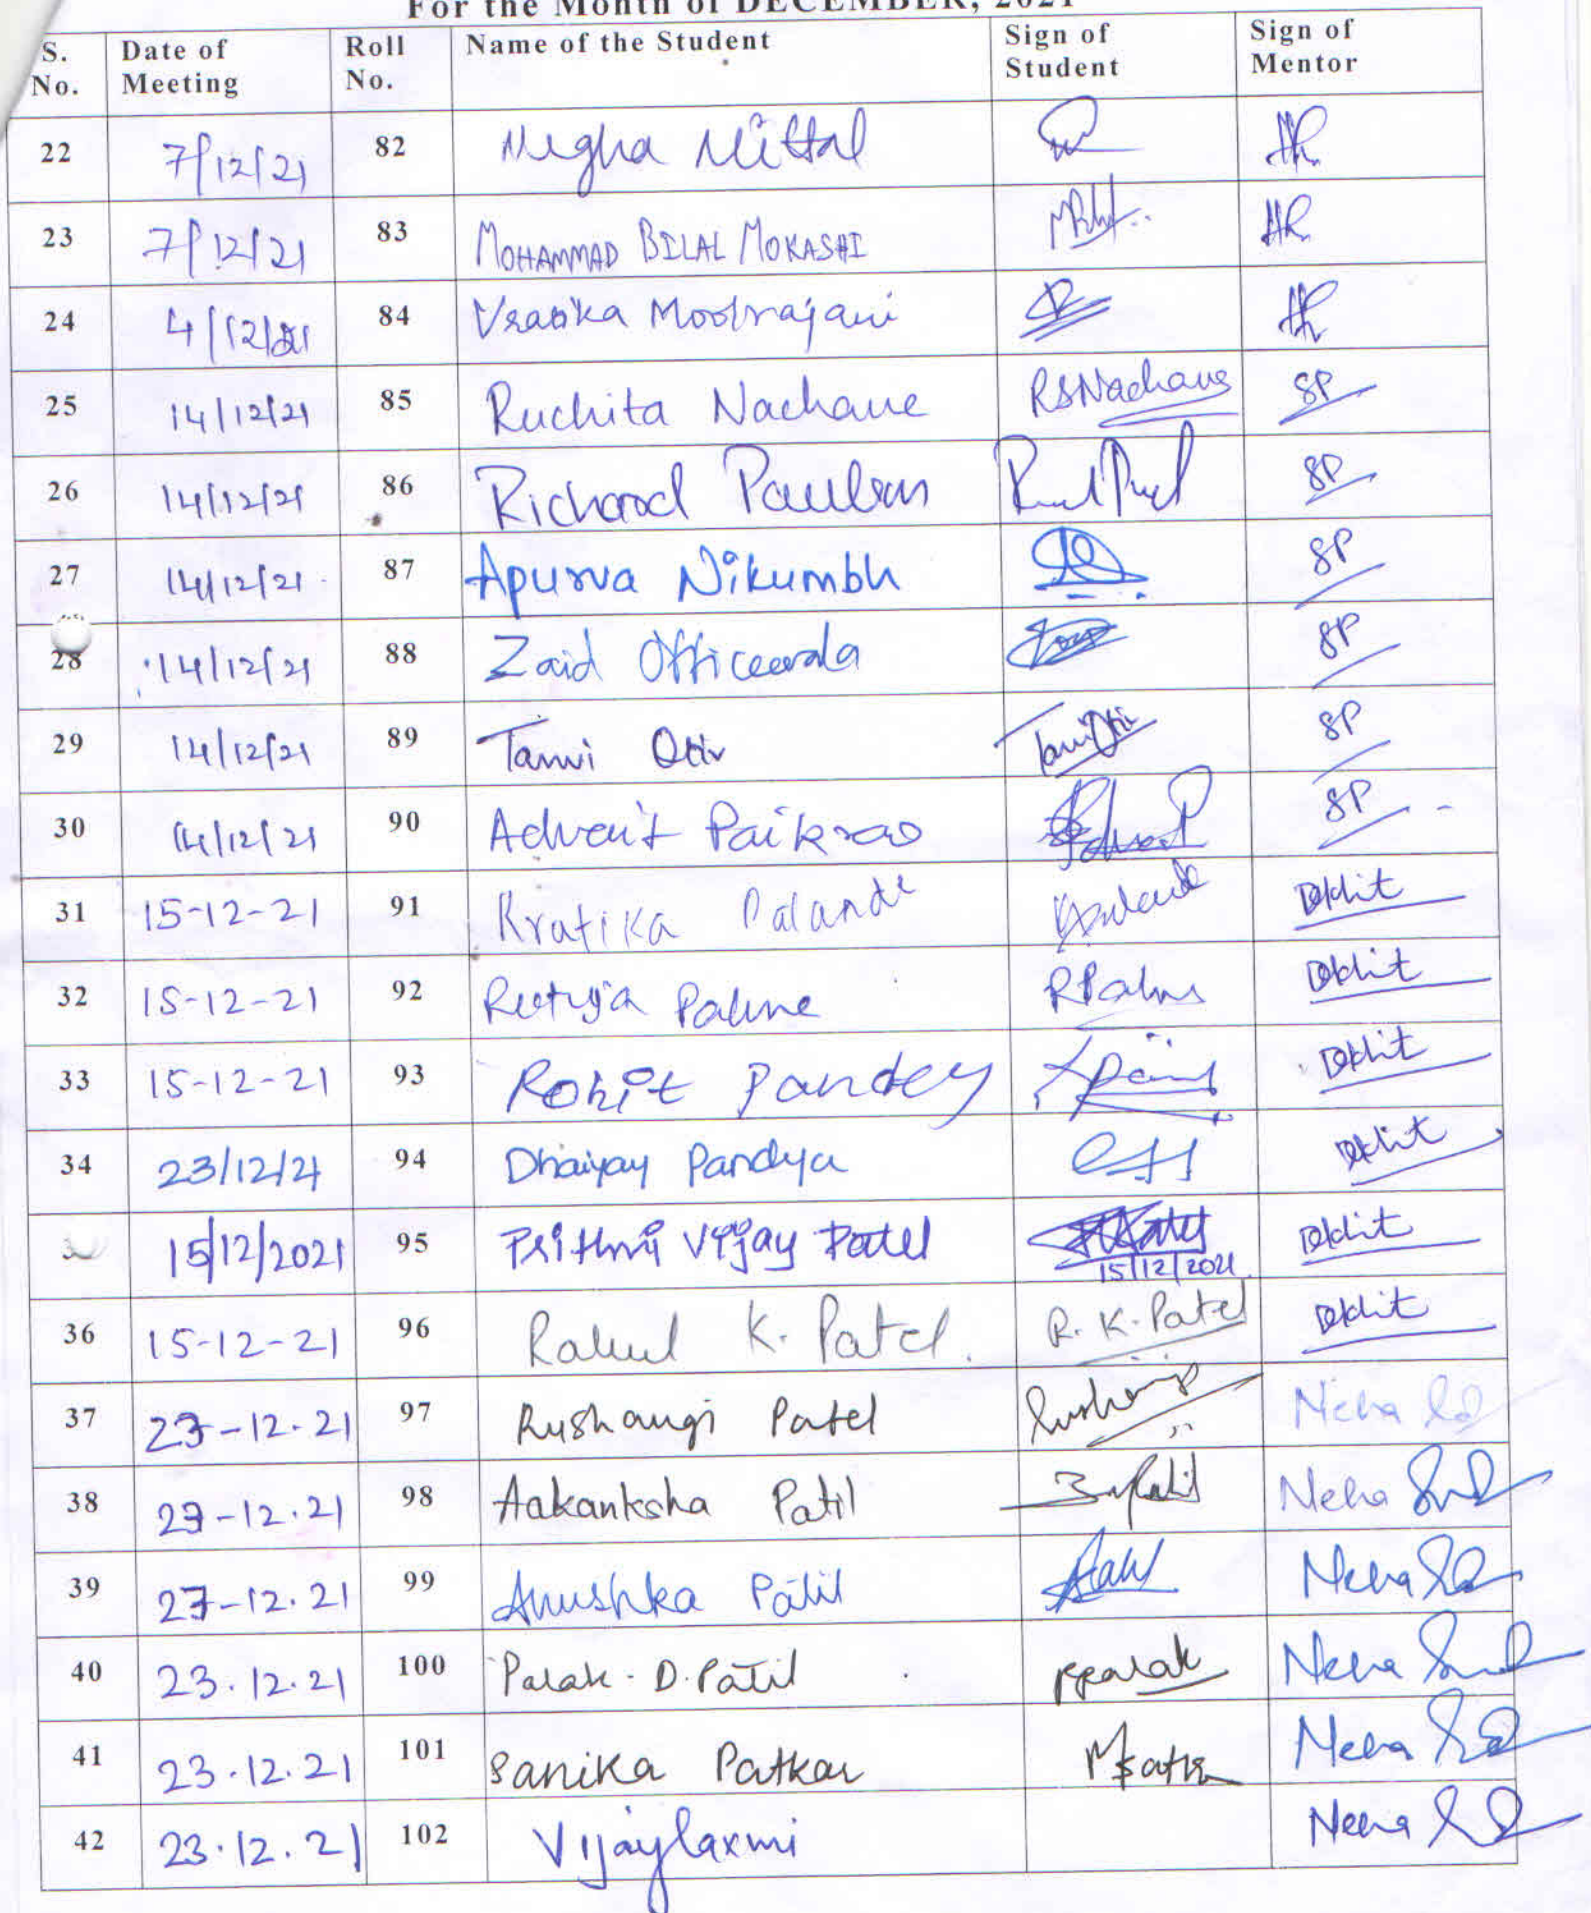 For the Month of DECEMBER, 2021
S. No. Date of Meeting Roll No. Name of the Student Sign of Student Sign of Mentor
22 7/12/21 82 Megha Mittal
23 7/12/21 83 MOHAMMAD BILAL MOKASHI
24 4/12/21 84 Moolrajani
25 14/12/21 85 Ruchita Nachane RSNachane SP
26 14/12/21 86 Richard Paulson SP
27 14/12/21 87 Apurva Nikumbh SP
28 14/12/21 88 Zaid Officewala SP
29 14/12/21 89 Tanvi Otiv Tanvi Otiv SP
30 14/12/21 90 Advait Paikrao SP
31 15-12-21 91 Kratika Palande
32 15-12-21 92 Rutuja Palme
33 15-12-21 93 Rohit Pandey
34 23/12/21 94 Pandya
15/12/2021 95 Prithvi Vijay Patel 15/12/2021
36 15-12-21 96 Rahul K. Patel. R. K. Patel
37 -12.21 97 Rushangi Patel Neha
38 -12.21 98 Aakanksha Patil Neha
39 -12.21 99 Anushka Patil Neha
40 23.12.21 100 Palak. D. Patil Neha
41 23.12.21 101 Sanika Patkar Neha
42 23.12.21 102 Vijaylaxmi Neha